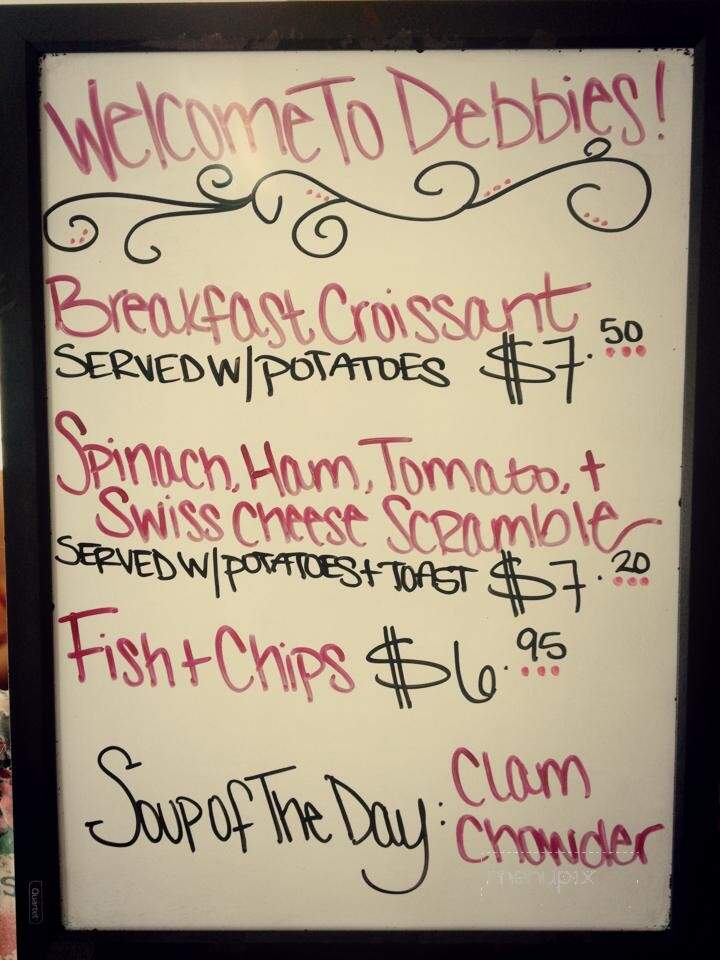 Welcome To Debbies!
Breakfast Croissant
SERVED W/POTATOES $7.50
Spinach, Ham, Tomato, +
Swiss Cheese Scramble
SERVED W/POTATOES + TOAST $7.20
Fish + Chips $6.95
Soup of The Day: Clam
Chowder
menupix
Quartet